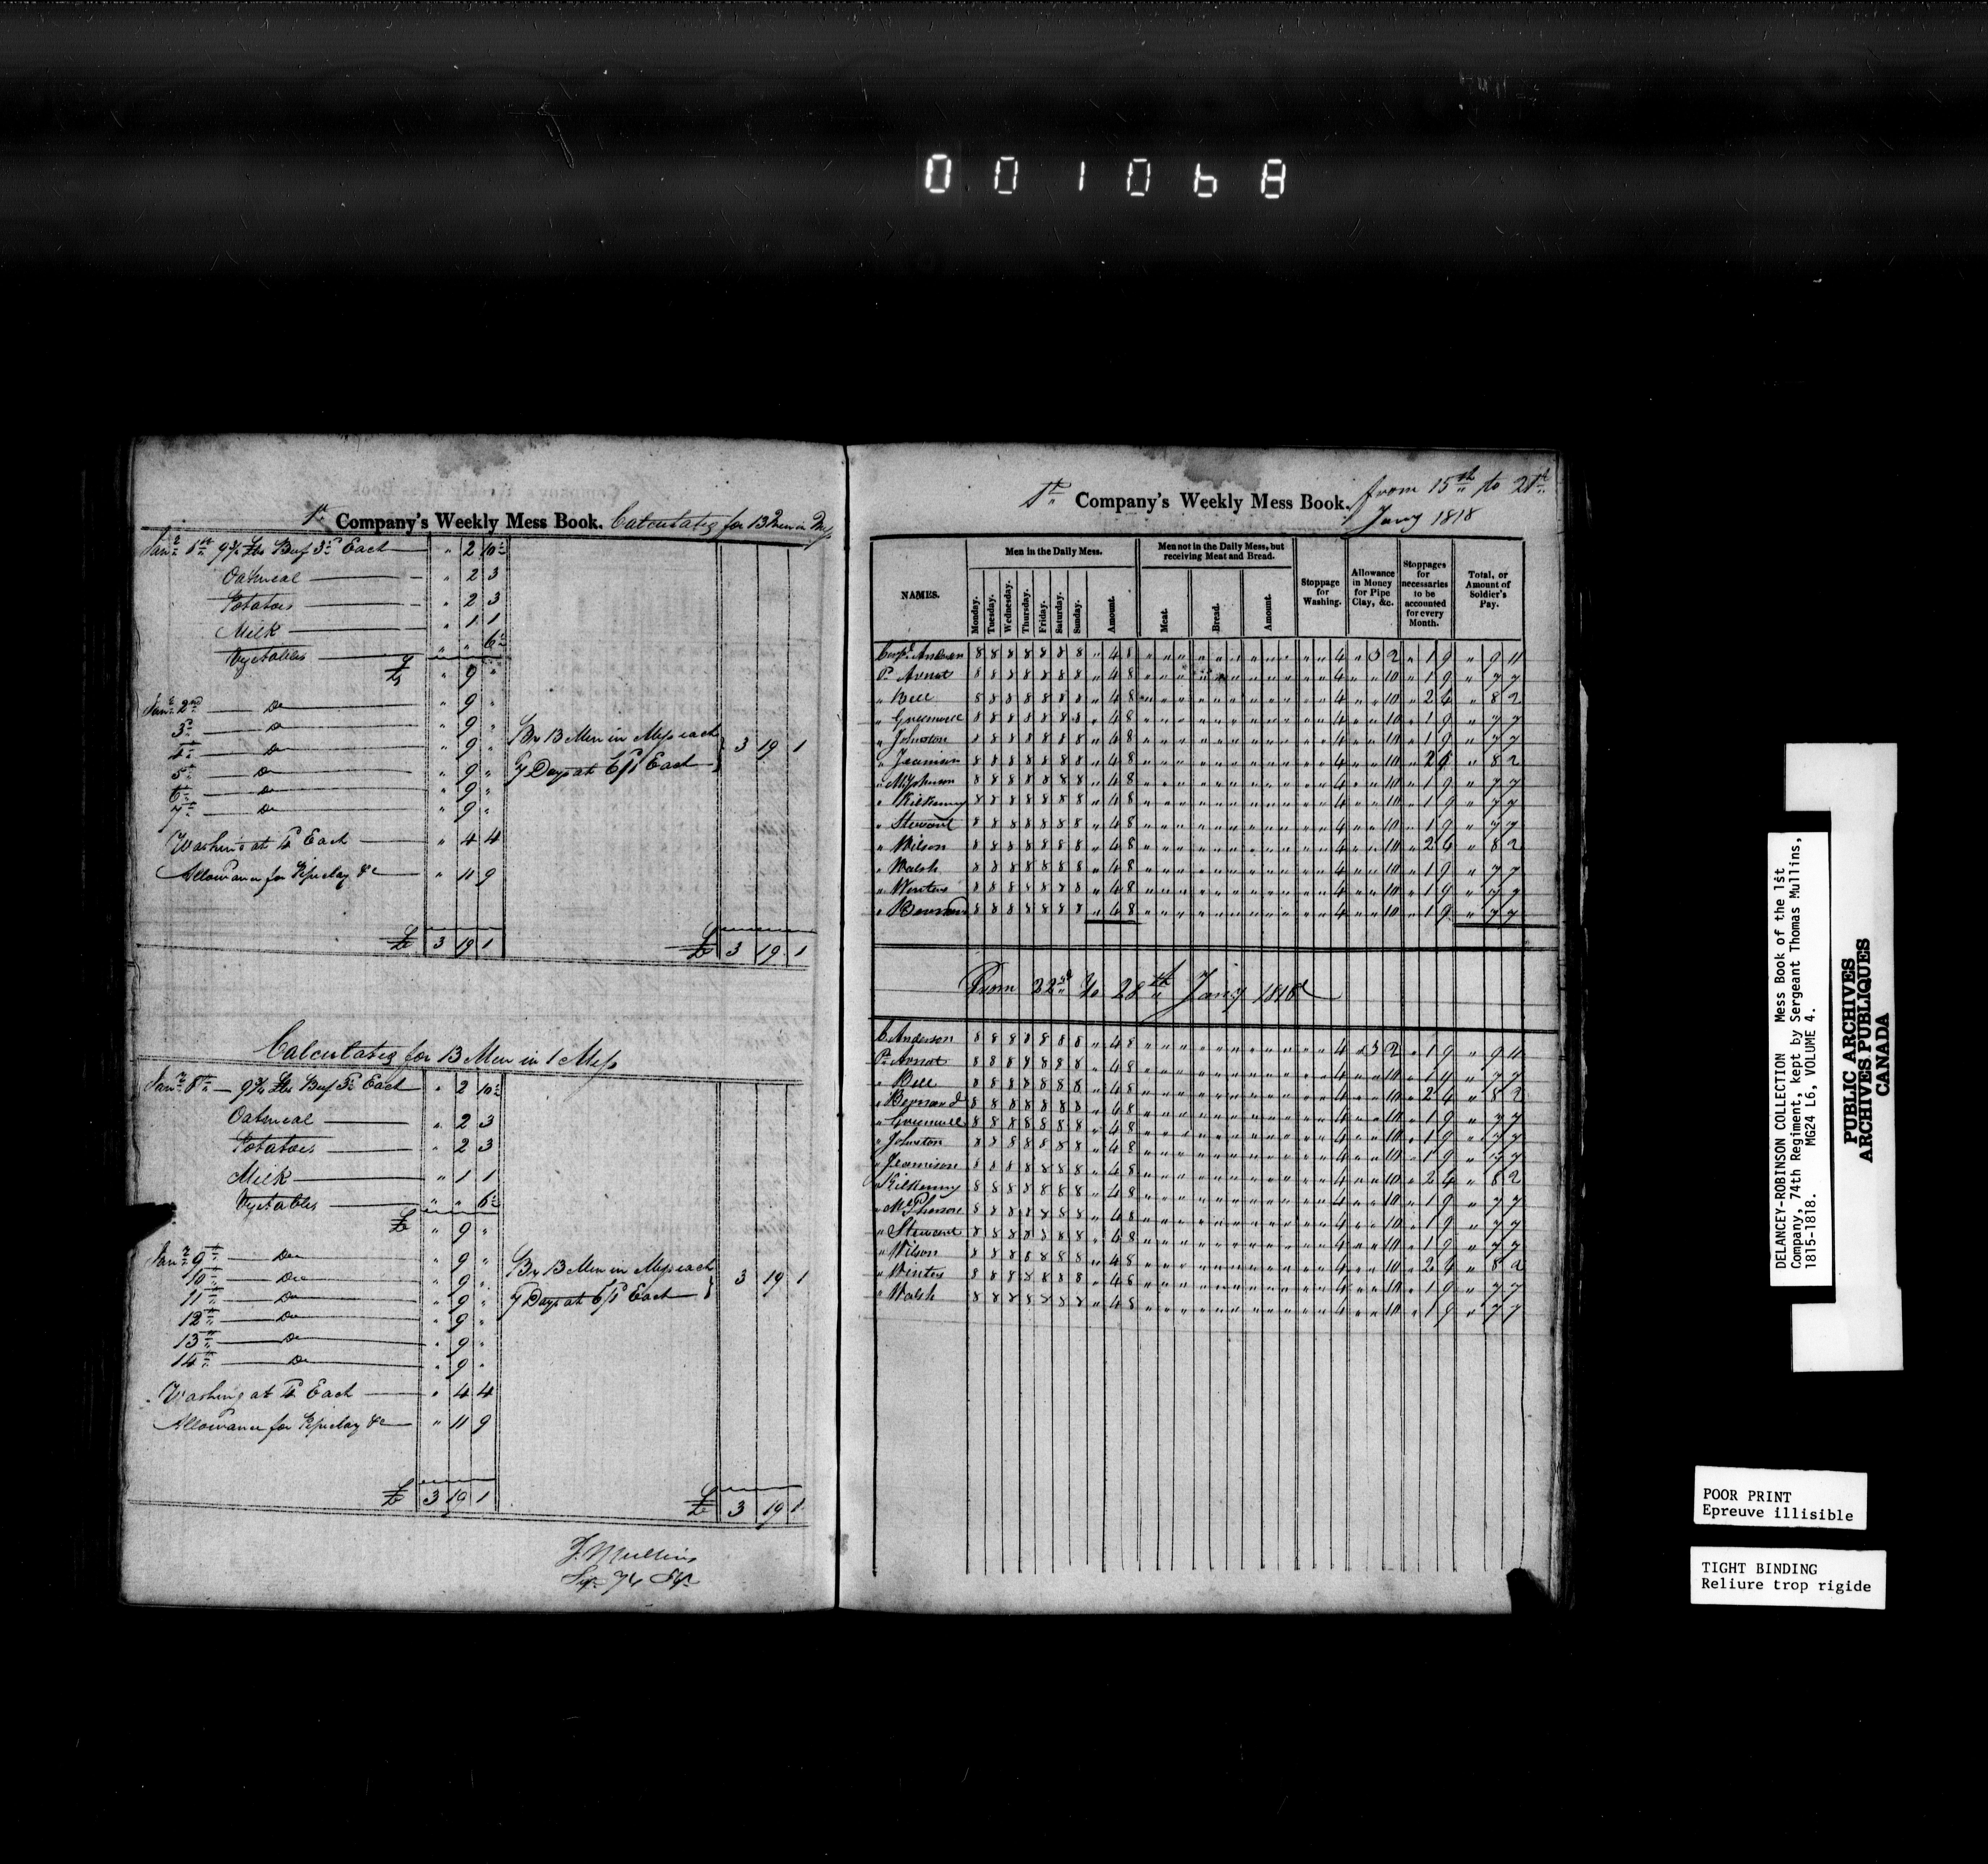 001068
1st Company's Weekly Mess Book. Calculating for 13 Men in Mess
Jany 1st 9¾ Lbs Beef 3½ Each " 2 10½
Oatmeal " 2 3
Potatoes " 2 3
Milk " 1 1
Vegetables " " 6½
£ " 9 "
Jany 2nd Do " 9 "
3d Do " 9 "
4th Do " 9 "
5th Do " 9 "
6th Do " 9 "
7th Do " 9 "
By 13 Men in Mess each
7 Days at Each } 3 19 1
Washing at 4d Each " 4 4
Allowance for Pipeclay &c " 11 9
£ 3 19 1 £ 3 19 1
Calculating for 13 Men in 1 Mess
Jany 8th 9¾ Lbs Beef 3½ Each " 2 10½
Oatmeal " 2 3
Potatoes " 2 3
Milk " 1 1
Vegetables " " 6½
£ " 9 "
Jany 9th Do " 9 "
10th Do " 9 "
11th Do " 9 "
12th Do " 9 "
13th Do " 9 "
14th Do " 9 "
By 13 Men in Mess each
7 Days at Each } 3 19 1
Washing at 4d Each " 4 4
Allowance for Pipeclay &c " 11 9
£ 3 19 1 £ 3 19 1
T. Mullins
Sgt 74
1st Company's Weekly Mess Book. from 15th to 21st
Jany 1818
NAMES.
Men in the Daily Mess.
Monday. Tuesday. Wednesday. Thursday. Friday. Saturday. Sunday. Amount.
Men not in the Daily Mess, but receiving Meat and Bread.
Meat. Bread. Amount.
Stoppage for Washing.
Allowance in Money for Pipe Clay, &c.
Stoppages for necessaries to be accounted for every Month.
Total, or Amount of Soldier's Pay.
Corpl Anderson 8 8 8 8 8 8 8 " 4 8 " " " " " " " " " " " 4 " 3 2 " 1 9 " 9 11
P. Arnot 8 8 8 8 8 8 8 " 4 8 " " " " " " " " " " " 4 " " 10 " 1 9 " 7 7
" Bell 8 8 8 8 8 8 8 " 4 8 " " " " " " " " " " " 4 " " 10 " 2 4 " 8 2
" 8 8 8 8 8 8 8 " 4 8 " " " " " " " " " " " 4 " " 10 " 1 9 " 7 7
" Johnston 8 8 8 8 8 8 8 " 4 8 " " " " " " " " " " " 4 " " 10 " 1 9 " 7 7
" Jeamison 8 8 8 8 8 8 8 " 4 8 " " " " " " " " " " " 4 " " 10 " 2 4 " 8 2
" 8 8 8 8 8 8 8 " 4 8 " " " " " " " " " " " 4 " " 10 " 1 9 " 7 7
" Kilkenny 8 8 8 8 8 8 8 " 4 8 " " " " " " " " " " " 4 " " 10 " 1 9 " 7 7
" Steward 8 8 8 8 8 8 8 " 4 8 " " " " " " " " " " " 4 " " 10 " 1 9 " 7 7
" Wilson 8 8 8 8 8 8 8 " 4 8 " " " " " " " " " " " 4 " " 10 " 2 4 " 8 2
" Walsh 8 8 8 8 8 8 8 " 4 8 " " " " " " " " " " " 4 " " 10 " 1 9 " 7 7
" Winters 8 8 8 8 8 8 8 " 4 8 " " " " " " " " " " " 4 " " 10 " 1 9 " 7 7
" Bernard 8 8 8 8 8 8 8 " 4 8 " " " " " " " " " " " 4 " " 10 " 1 9 " 7 7
From 22nd to 28th Jany 1818
C. Anderson 8 8 8 8 8 8 8 " 4 8 " " " " " " " " " " " 4 " 3 2 " 1 9 " 9 11
P. Arnot 8 8 8 8 8 8 8 " 4 8 " " " " " " " " " " " 4 " " 10 " 1 9 " 7 7
" Bell 8 8 8 8 8 8 8 " 4 8 " " " " " " " " " " " 4 " " 10 " 2 4 " 8 2
" Bernard 8 8 8 8 8 8 8 " 4 8 " " " " " " " " " " " 4 " " 10 " 1 9 " 7 7
" 8 8 8 8 8 8 8 " 4 8 " " " " " " " " " " " 4 " " 10 " 1 9 " 7 7
" Johnston 8 8 8 8 8 8 8 " 4 8 " " " " " " " " " " " 4 " " 10 " 1 9 " 7 7
" Jeamison 8 8 8 8 8 8 8 " 4 8 " " " " " " " " " " " 4 " " 10 " 2 4 " 8 2
" Kilkenny 8 8 8 8 8 8 8 " 4 8 " " " " " " " " " " " 4 " " 10 " 1 9 " 7 7
" McPherson 8 8 8 8 8 8 8 " 4 8 " " " " " " " " " " " 4 " " 10 " 1 9 " 7 7
" Steward 8 8 8 8 8 8 8 " 4 8 " " " " " " " " " " " 4 " " 10 " 1 9 " 7 7
" Wilson 8 8 8 8 8 8 8 " 4 8 " " " " " " " " " " " 4 " " 10 " 2 4 " 8 2
" Winters 8 8 8 8 8 8 8 " 4 8 " " " " " " " " " " " 4 " " 10 " 1 9 " 7 7
" Walsh 8 8 8 8 8 8 8 " 4 8 " " " " " " " " " " " 4 " " 10 " 1 9 " 7 7
DELANCEY-ROBINSON COLLECTION Mess Book of the 1st
Company, 74th Regiment, kept by Sergeant Thomas Mullins,
1815-1818. MG24 L6, VOLUME 4.
PUBLIC ARCHIVES
ARCHIVES PUBLIQUES
CANADA
POOR PRINT
Epreuve illisible
TIGHT BINDING
Reliure trop rigide